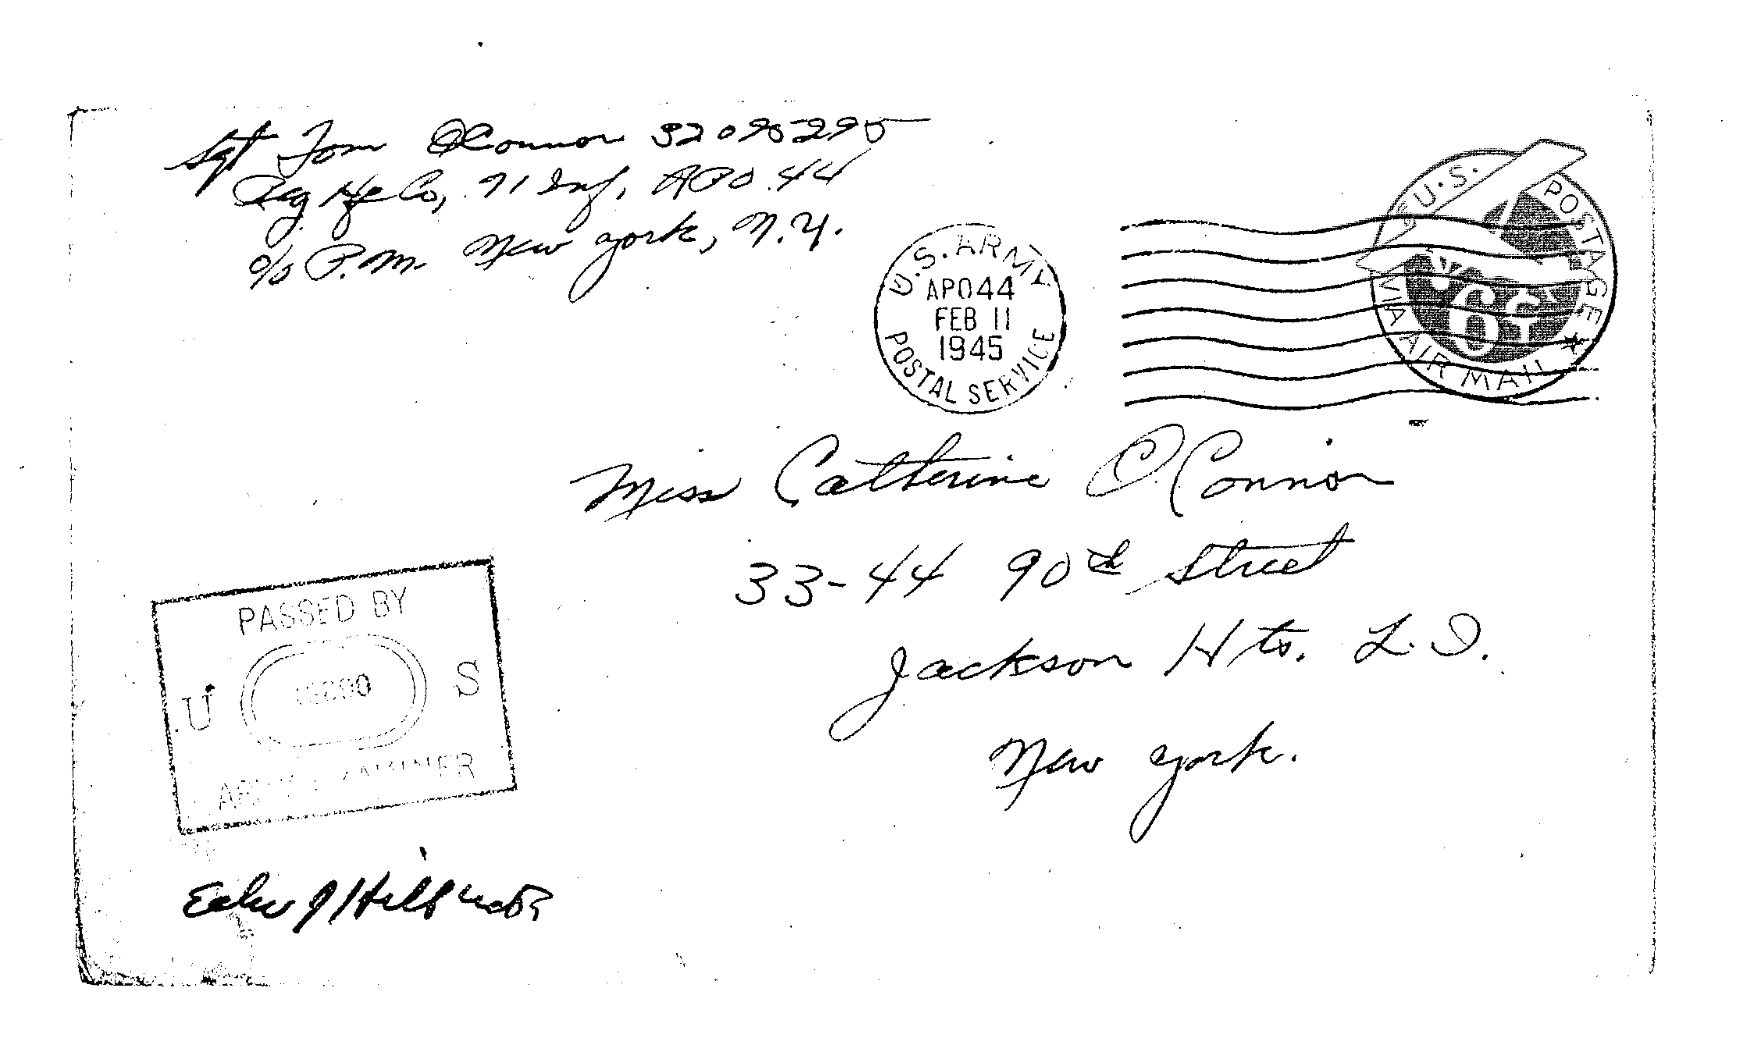 Sgt Tom O'Connor 32095295
Reg Hq Co, 71 Inf, APO 44
c/o P.M. New York, N.Y.
U.S. ARMY
APO 44
FEB 11
1945
POSTAL SERVICE
U.S. POSTAGE
6¢
VIA AIR MAIL
Miss Catherine O'Connor
33-44 90th Street
Jackson Hts. L.I.
New York.
PASSED BY
U S
ARMY EXAMINER